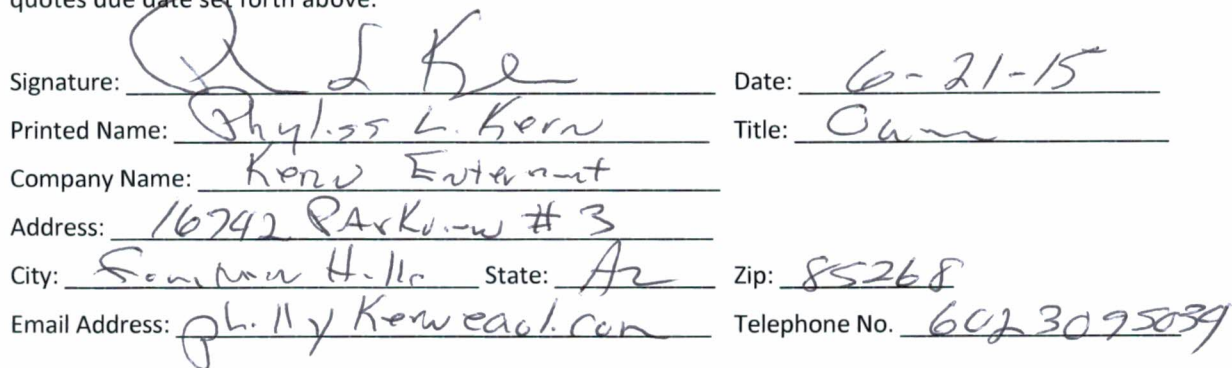 quotes due date set forth above.
Signature: Date: 6-21-15
Printed Name: Phyliss L. Kern Title:
Company Name: Kern
Address: 16742 Parkview # 3
City: Fountain Hills State: Az Zip: 85268
Email Address: phillykern@aol.com Telephone No. 6023095039